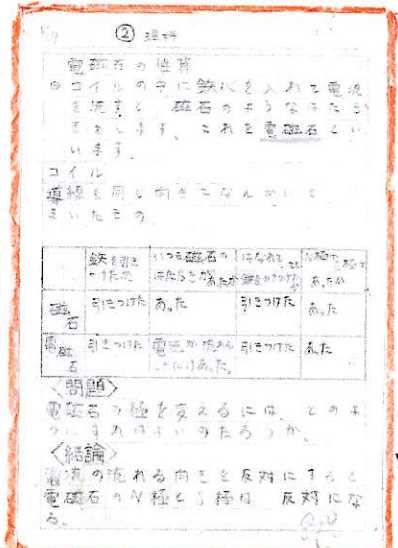 ② 理科
電磁石の性質
コイルの中に鉄心を入れて電流
を流すと、磁石のようなはたら
きをします。これを電磁石とい
います。
コイル
導線を同じ向きになんかいも
まいたもの
鉄を引き つけたか いつも磁石の はなれていても N極やS極は
はたらきが あったか 鉄を引きつけたか あったか
磁石 引きつけた あった 引きつけた あった
電磁石 引きつけた 電流が流れる 引きつけた あった
だけあった
〈問題〉
電磁石の極を変えるには、どのよ
うにすればよいのだろうか。
〈結論〉
電流の流れる向きを反対にすると
電磁石のN極とS極は、反対にな
る。